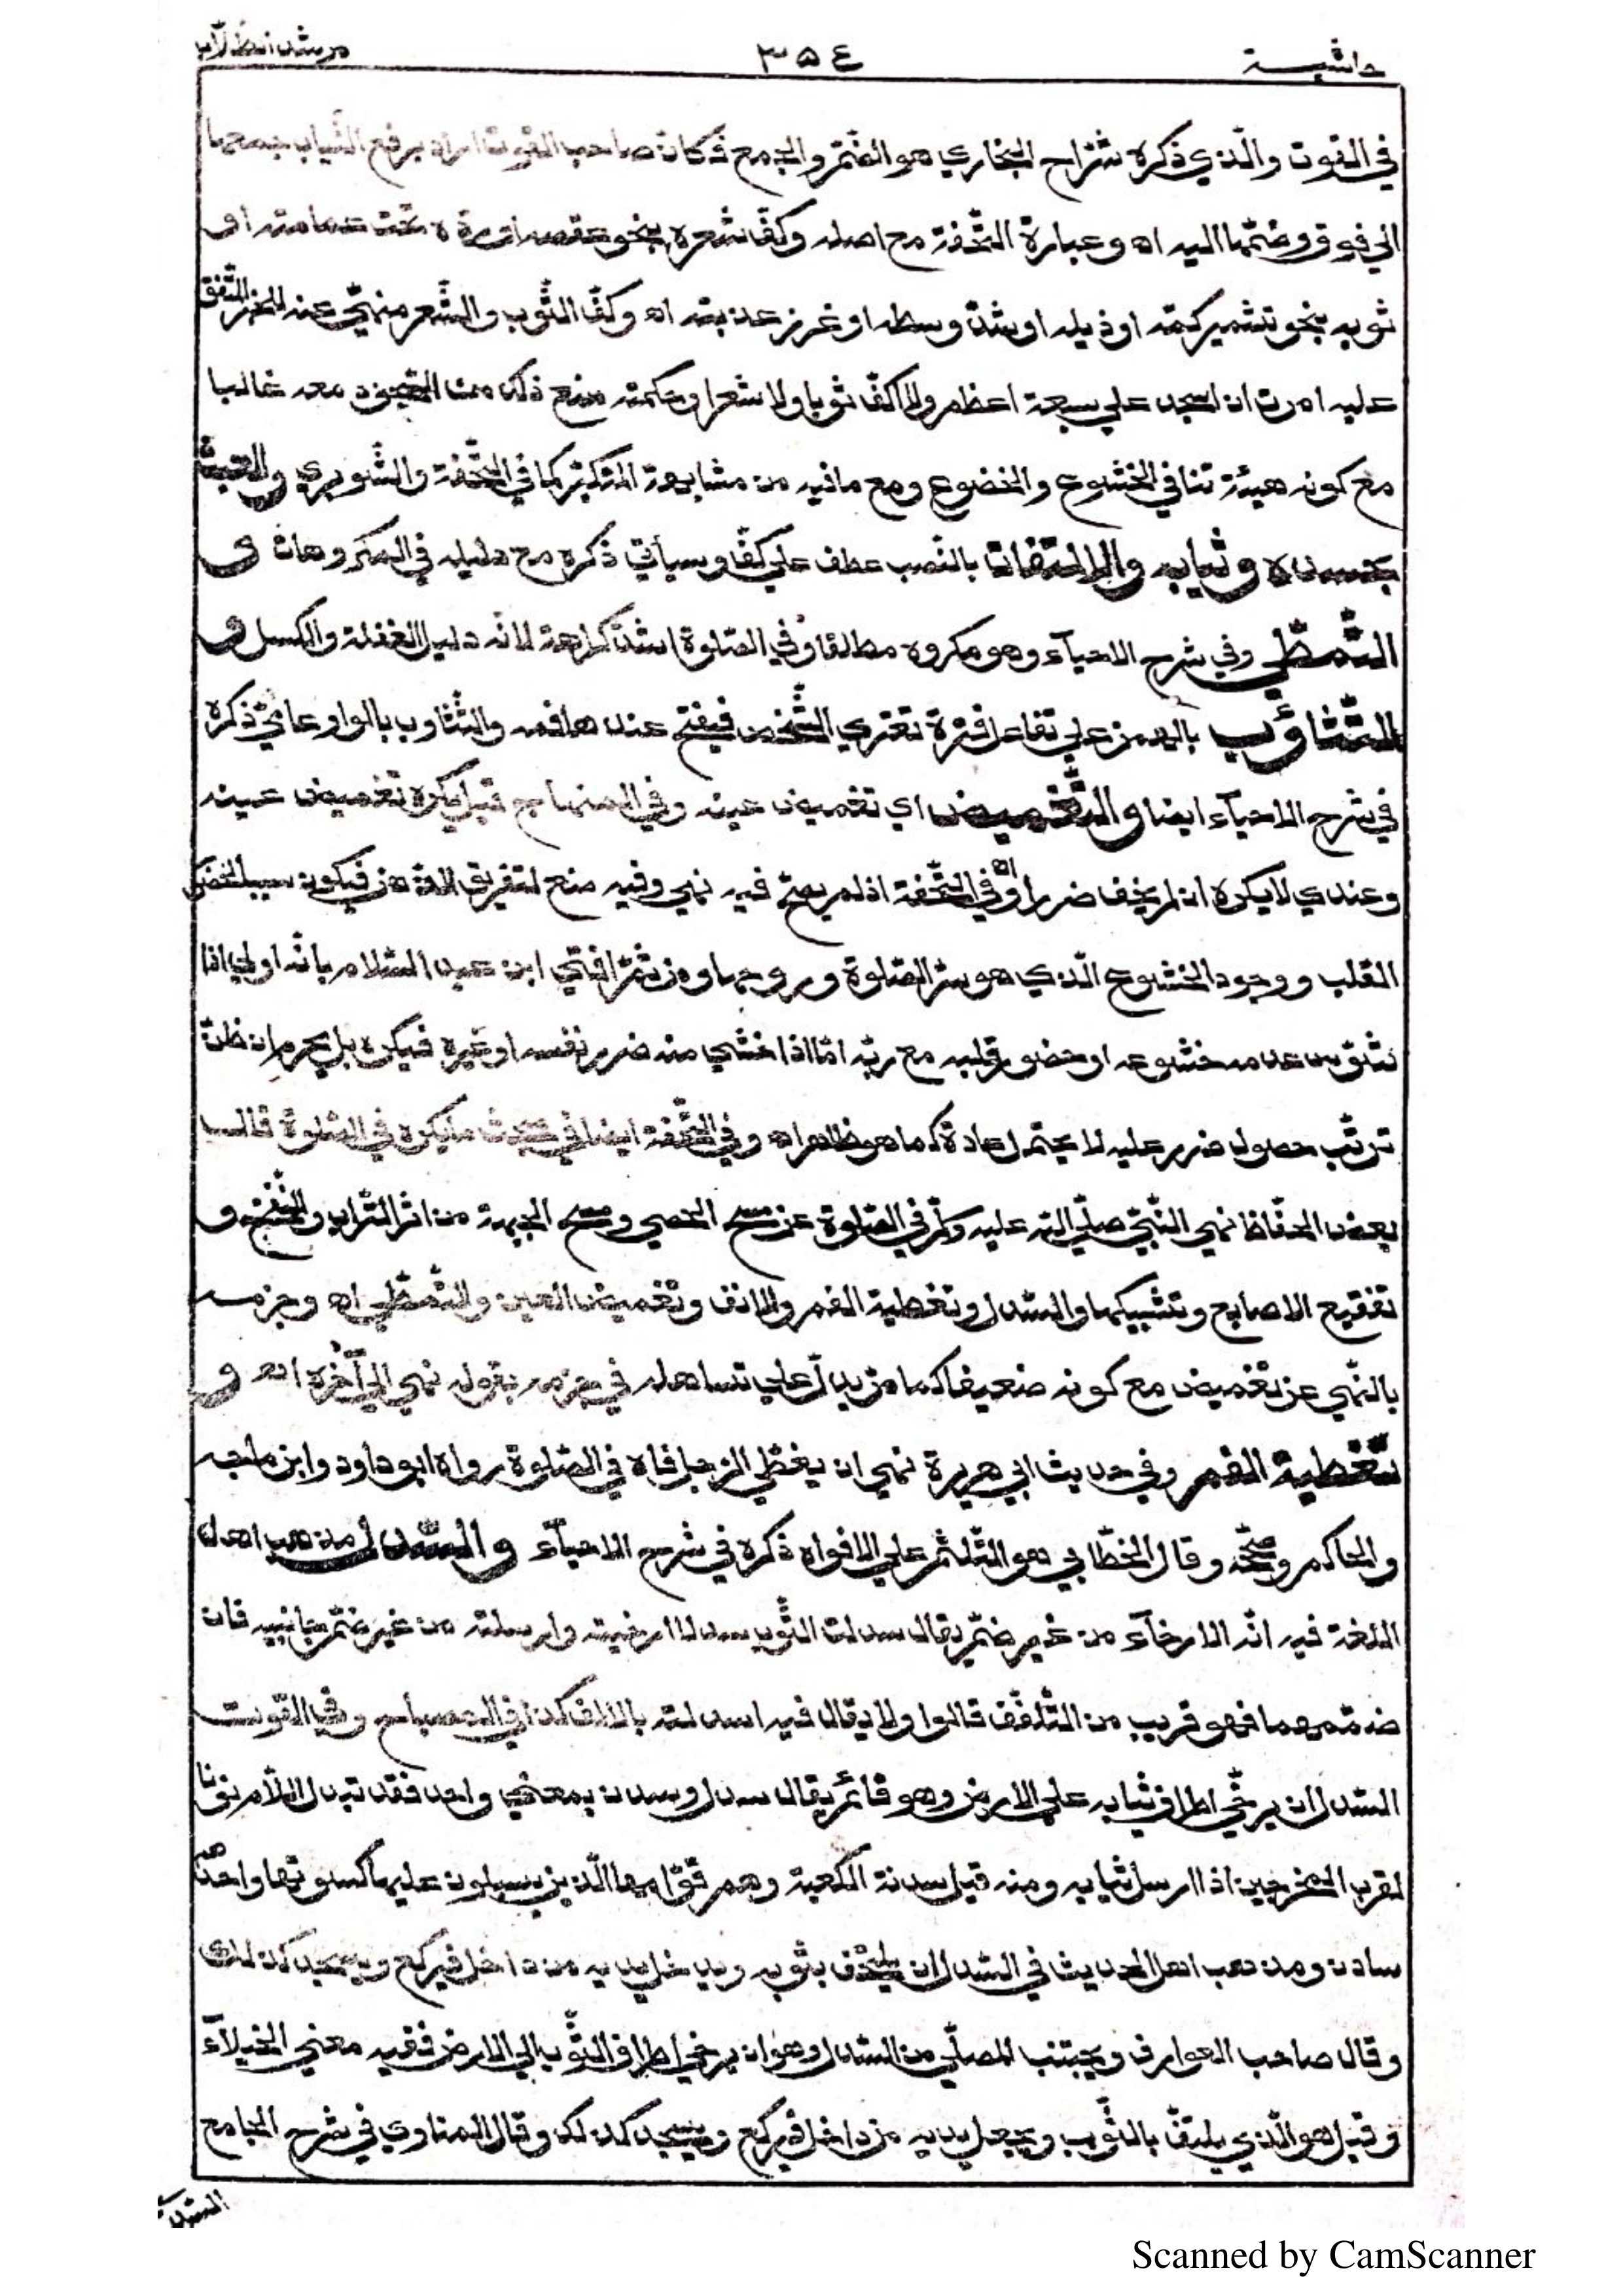 حاشية ٣٥٤ مرشد الطلاب
في القوت والّذي ذكره شرّاح البخاري هو الضّمّ والجمع فكان صاحب القوت اراد برفع الثّياب جمعها
الي فوق وضمّها اليه اه وعبارة التّحفة مع اصله وكفّ شعره بنحو عقصه او ردّه تحت عمامته او
ثوبه بنحو تشمير كمّه او ذيله او شدّ وسطه او غرز عذبته اه وكفّ الثّوب والشّعر منهيّ عنه للخبر المتّفق
عليه امرت ان اسجد علي سبعة اعظم ولا اكفّ ثوبا ولا شعرا وحكمة منع ذلك منع السّجود معه غالبا
مع كونه هيئة تنافي الخشوع والخضوع ومع ما فيه من مشابهة المتكبّر كما في التّحفة والشّوبري والعبث
بجسده وثيابه والالتفات بالنّصب عطف علي كفّ وسيأتي ذكره مع دليله في المكروهات و
التّمطّي وفي شرح الاحيآء وهو مكروه مطلقا وفي الصّلوة اشدّ كراهة لانّه دليل الغفلة والكسل و
التّثاؤب بالهمز علي تفاعل فترة تعتري الشّخص فيفتح عندها فمه والتّثاوب بالواو عاميّ ذكره
في شرح الاحيآء ايضا والتّغميض اي تغميض عينه وفي المنهاج قيل يكره تغميض عينه
وعندي لا يكره ان لم يخف ضررا اه وفي التّحفة اذ لم يصحّ فيه نهي وفيه منع لتفريق الذّهن فيكون سببا لحضور
القلب ووجود الخشوع الّذي هو سرّ الصّلوة وروحها ومن ثمّ افتي ابن عبد السّلام بانّه اولي اذا
شوّش عدمه خشوعه او حضور قلبه مع ربّه امّا اذا خشي منه ضرر نفسه او غيره فيكره بل يحرم ان ظنّ
ترتّب حصول ضرر عليه لا يحتمل عادة كما هو ظاهر اه وفي التّحفة ايضا في مبحث ما يكره في الصّلوة قال
بعض الحفّاظ نهي النّبيّ صلّي اللّه عليه وسلّم في الصّلوة عن مسح الحصي ومسح الجبهة من اثر التّراب والنّفخ و
تفقيع الاصابع وتشبيكها والسّدل وتغطية الفم والانف وتغميض العين والتّمطّي اه وجزمه
بالنّهي عن تغميض مع كونه ضعيفا كما مرّ يدلّ علي تساهله في جزمه بقوله نهي الي آخره اه و
تغطية الفم وفي حديث ابي هريرة نهي ان يغطّي الرّجل فاه في الصّلوة رواه ابو داود وابن ماجه
والحاكم وصحّحه وقال الخطّابي هو التّلثّم علي الافواه ذكره في شرح الاحيآء والسّدل مذهب اهل
اللغة فيه انّه الارخآء من غير ضمّ يقال سدلت الثّوب سدلا ارخيته وارسلته من غير ضمّ جانبيه فان
ضممهما فهو قريب من التّلفّف قالوا ولا يقال فيه اسدلته بالالف كذا في المصباح وفي القوت
السّدل ان يرخّي اطراف ثيابه علي الارض وهو قائم يقال سدل وسدن بمعني واحد فقد تبدل اللّام نونا
لقرب المخرجين اذا ارسل ثيابه ومنه قيل سدنة الكعبة وهم قوّامها الّذين يسبلون عليها كسوتها واحدهم
سادن ومذهب اهل الحديث في السّدل ان يلتحف بثوبه ويدخل يديه من داخل فيركع ويسجد كذلك
وقال صاحب العوارف ويجتنب المصلّي من السّدل وهو ان يرخي اطراف الثّوب الي الارض ففيه معني الخيلآء
وقيل هو الّذي يلتفّ بالثّوب ويجعل يديه من داخل فيركع ويسجد كذلك وقال المناوي في شرح الجامع
السّدل
Scanned by CamScanner